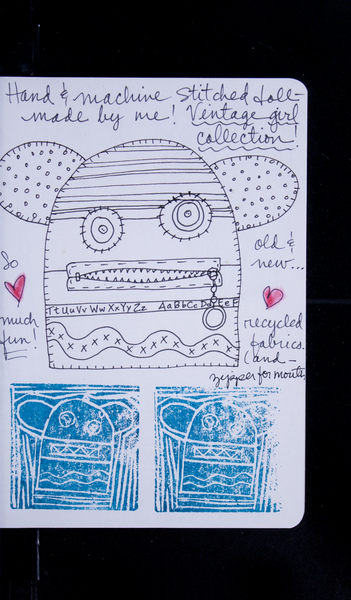 Hand & machine Stitched doll-
made by me! Vintage girl
collection!
So
much
fun!
old &
new...
recycled
fabrics.
(and -
zipper for mouth
TtUuVvWwXxYyZz AaBbCcDdEeF